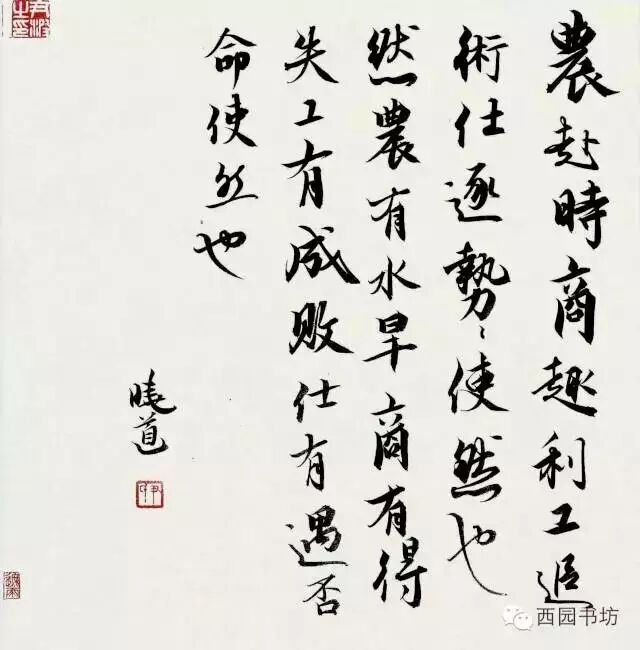 農赴時商趣利工追
術仕逐勢〻使然也
然農有水旱商有得
失工有成敗仕有遇否
命使然也
曉道
西园书坊